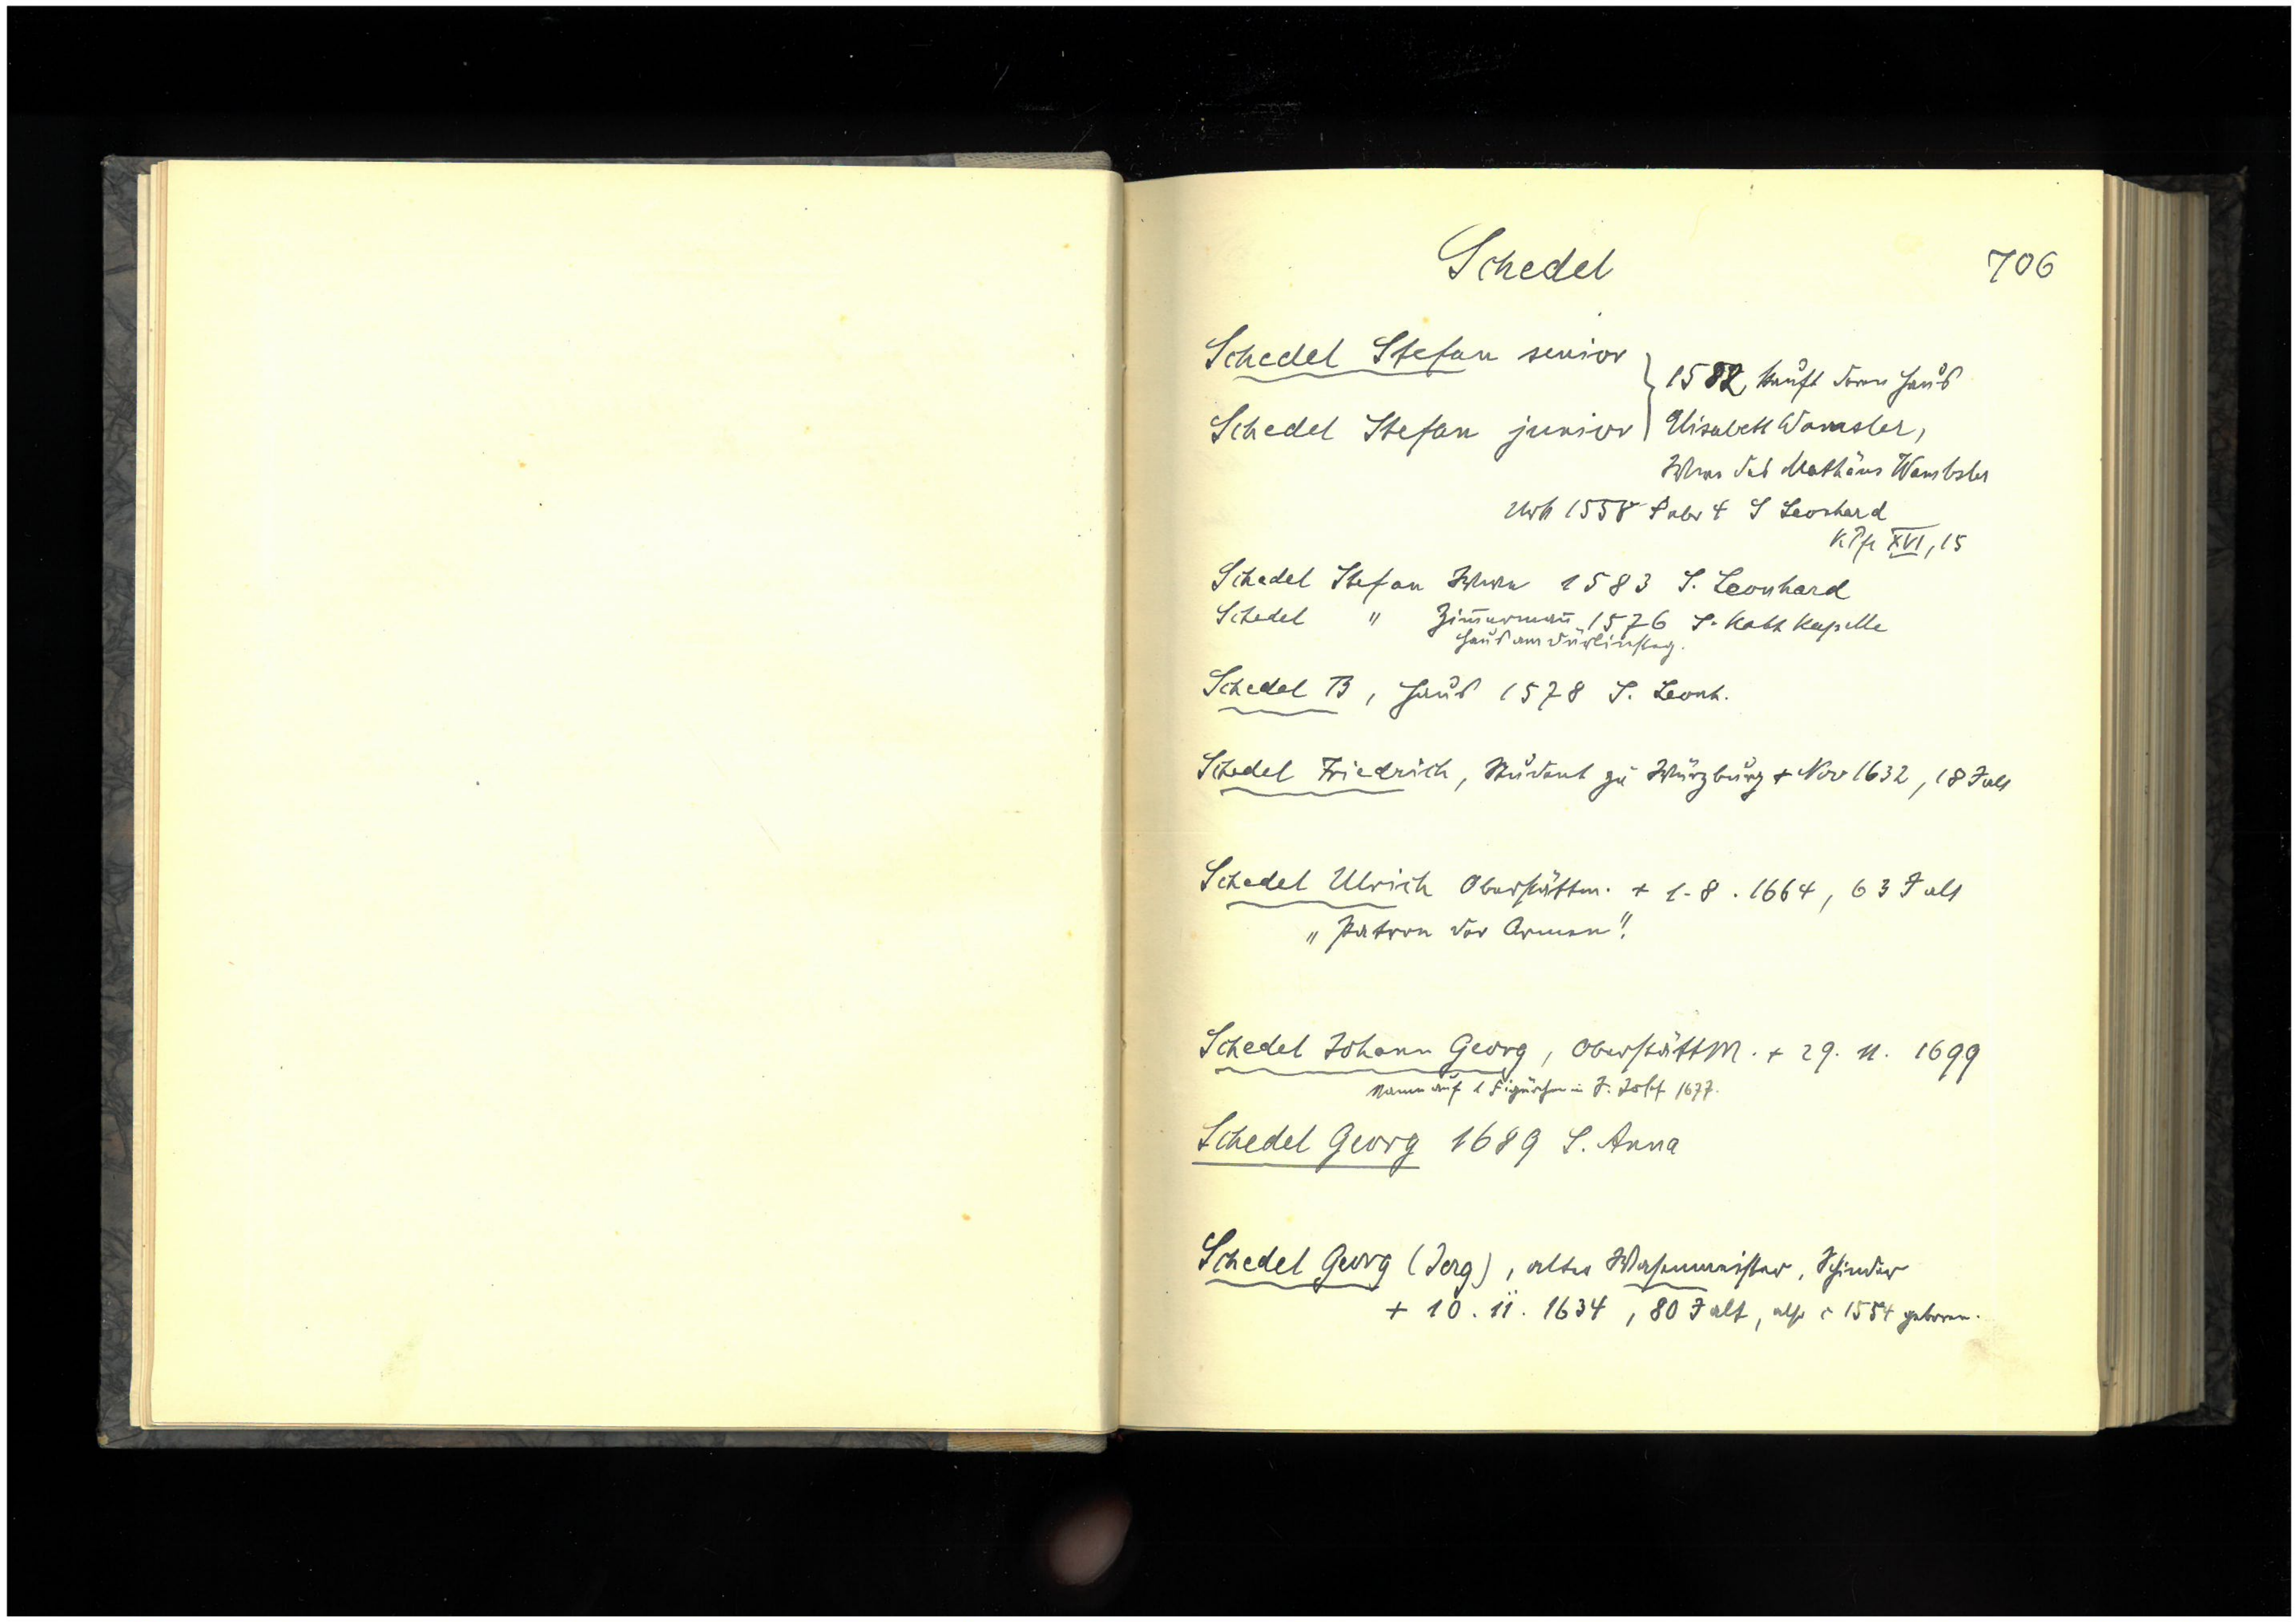 Schedel
706
Schedel Stefan senior
1582 kauft deren Haus
Schedel Stefan junior
Elisabeth Wamsler,
Wwe des Mathäus Wambsler
Urk 1558 S. Leonhard
XVI, 15
Schedel Stefan Wwe 1583 S. Leonhard
Schedel " Zim̄erman̄ 1576 S. Kath Kapelle
Haus am
Schedel B, Haus 1578 S. Leonh.
Schedel Friedrich, Student zu Würzburg + Nov 1632, 18 J alt
Schedel Ulrich Oberstättm. + 1.8.1664, 63 J alt
"Patron der Armen".
Schedel Johann Georg, OberstättM. + 29. 11. 1699
Name auf 1 1677.
Schedel Georg 1689 S. Anna
Schedel Georg (Jerg), alter Wasenmeister, Schinder
+ 10. 11. 1634, 80 J alt, also c 1554 geboren.